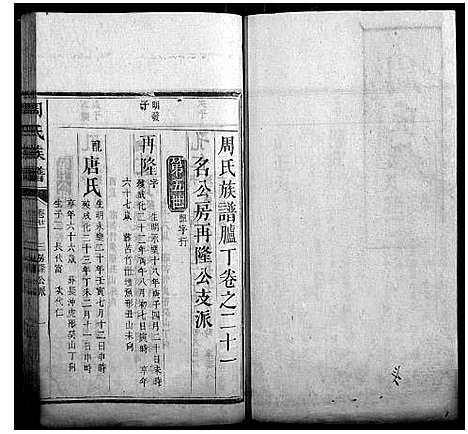 周氏族譜臚丁卷之二十一
名公房再隆公支派
第五世
再字行
明發
子
再隆
字
生明永樂十八年庚子四月二十日未時
歿成化二十二年丙午八月初七日寅時 享年
六十七歲 葬古竹仕地魚形丑山未利
配
唐氏
生明永樂二十年壬寅七月十三日申時
歿成化二十三年丁未二月十一日申時
享年六十六歲 葬長沖虎形癸山丁利
生子二 長代富 次代仁
周氏族譜
卷廿一
一